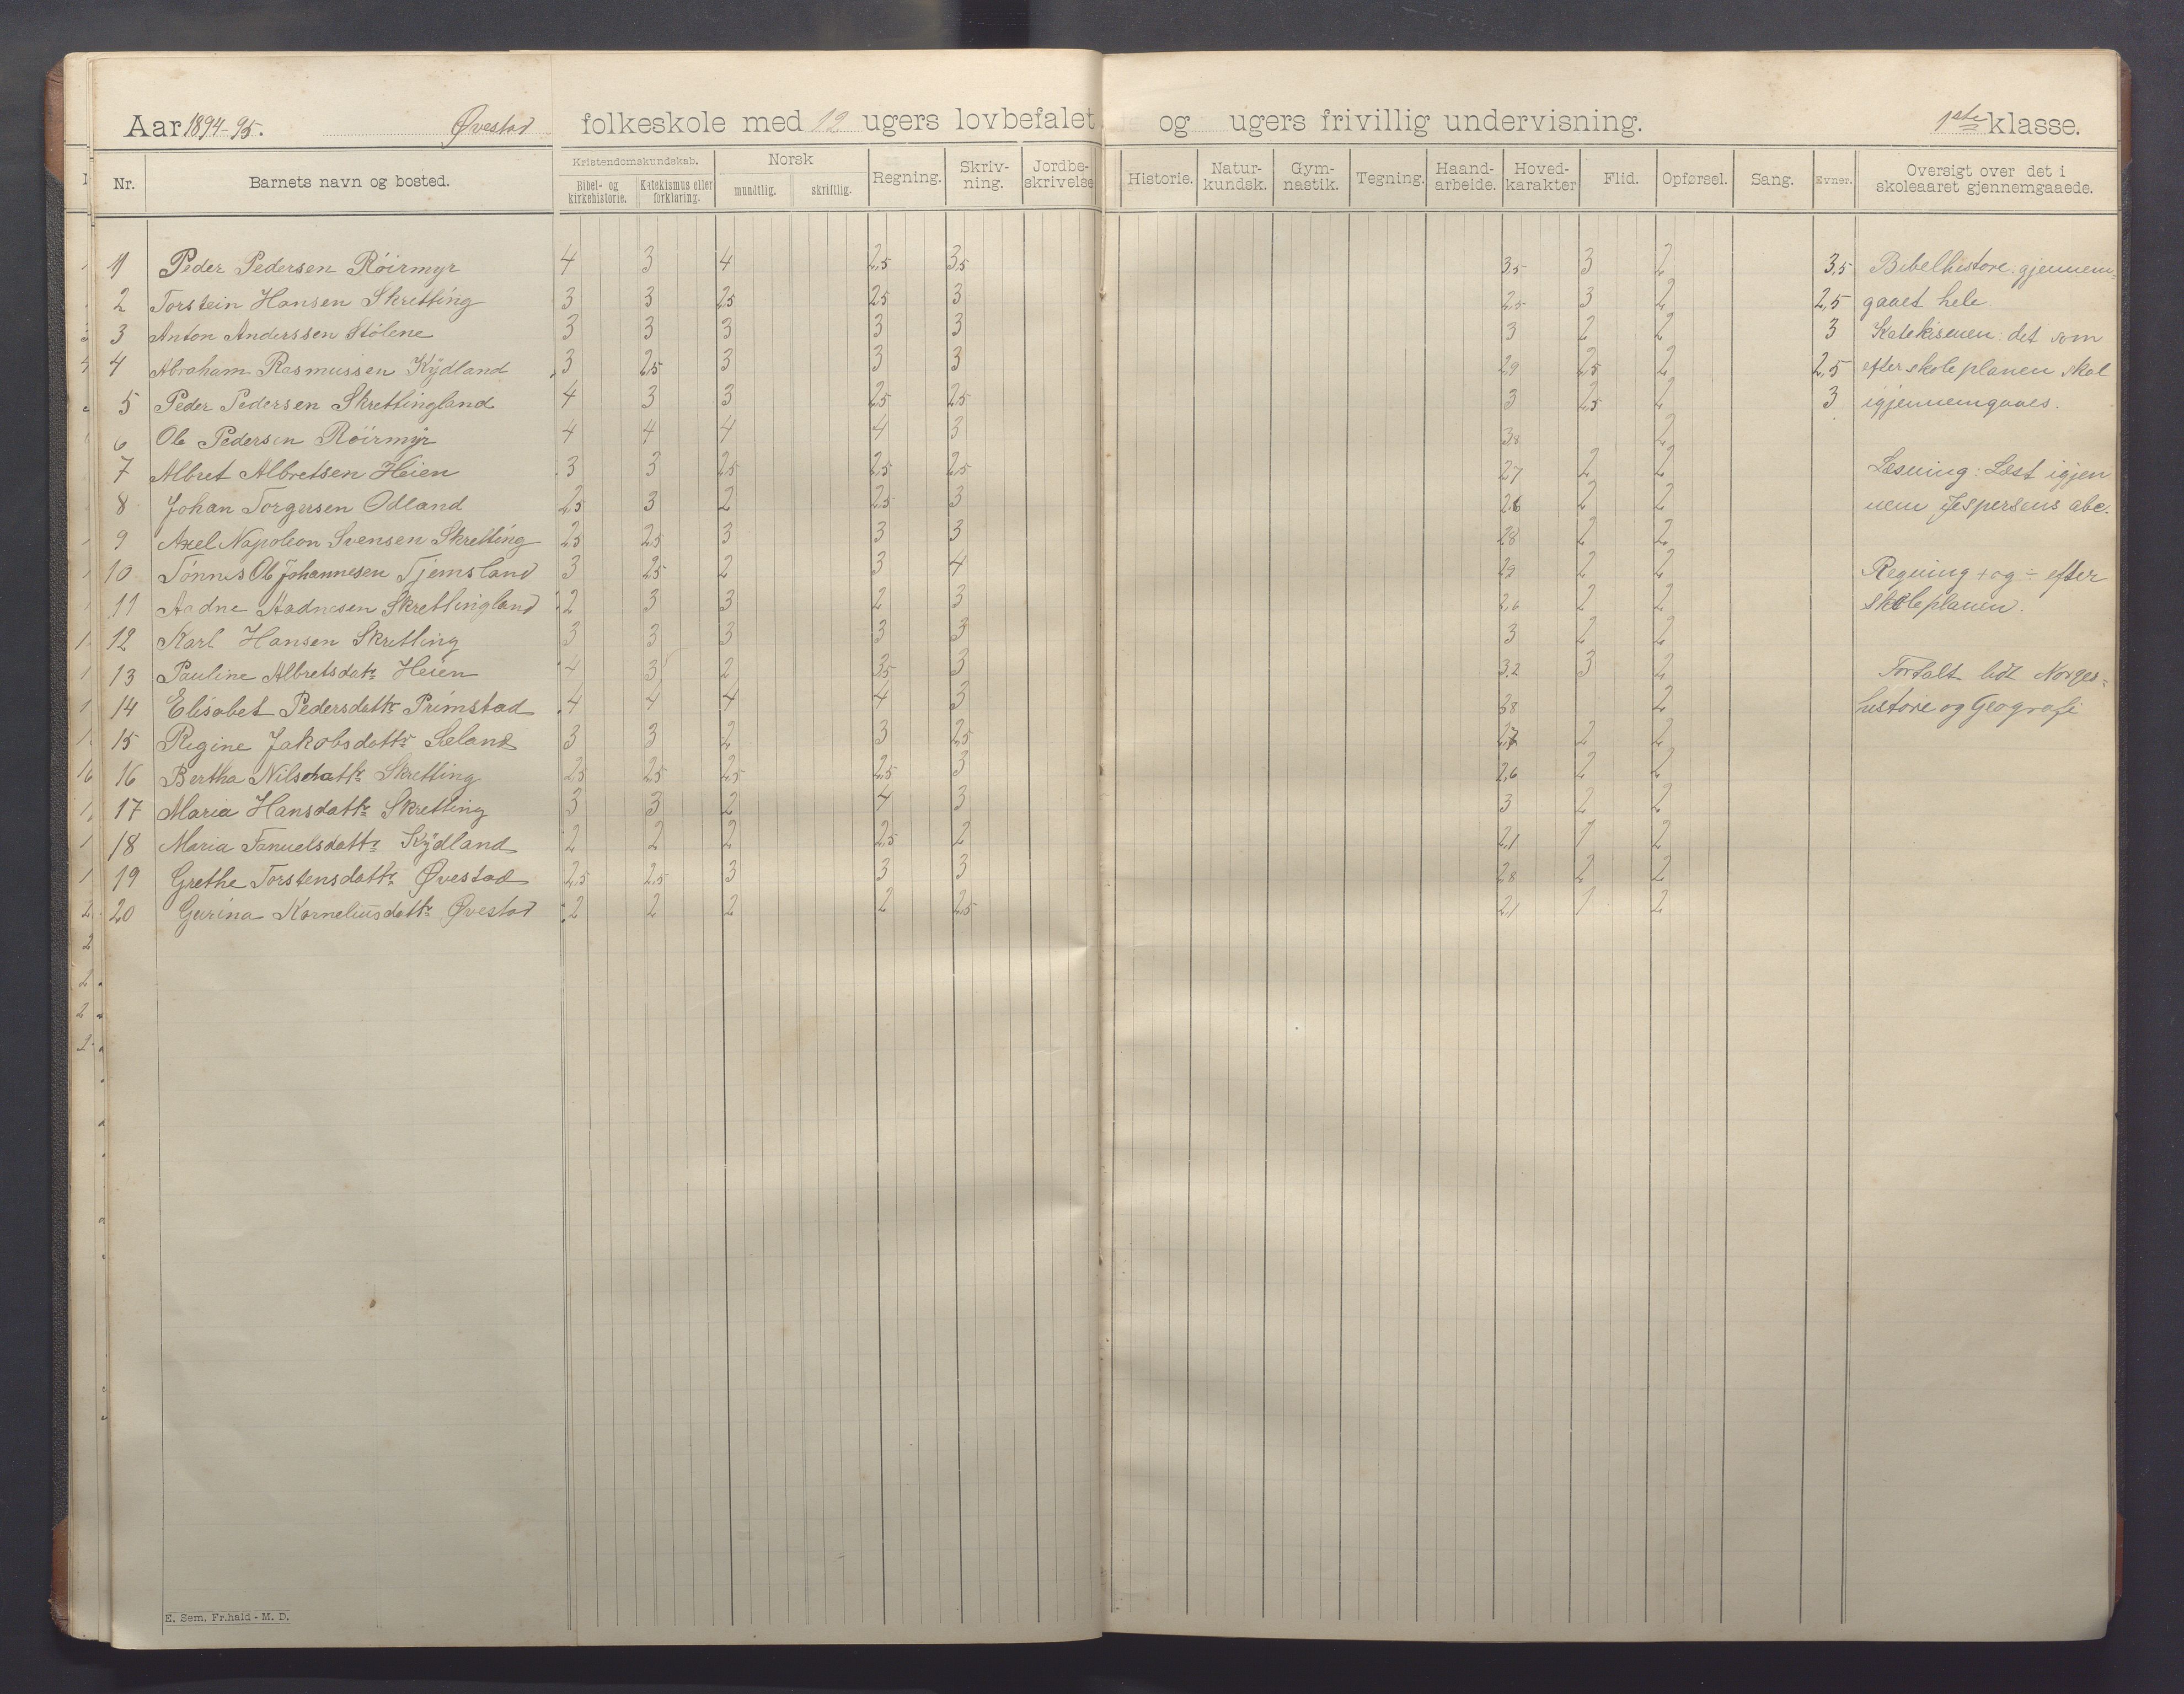 Aar 1894-95. Øvestad folkeskole med 12 ugers lovbefalet og ugers frivillig undervisning. 1ste klasse.
Nr. Barnets navn og bosted. Kristendomskundskab. Bibel- og kirkehistorie. Katekismus eller forklaring. Norsk mundtlig. skriftlig. Regning. Skriv-ning. Jordbe-skrivelse Historie. Natur-kundsk. Gym-nastik. Tegning. Haand-arbeide. Hoved-karakter Flid. Opførsel. Sang. Evner. Oversigt over det i skoleaaret gjennemgaaede.
1 Peder Pedersen Röirmyr 4 3 4 2,5 3,5 3,5 3 2 3,5 Bibelhistore: gjennem-
2 Torstein Hansen Skretting 3 3 2,5 2,5 3 2,5 3 2 2,5 gaaet hele.
3 Anton Anderssen Stölene 3 3 3 3 3 3 2 2 3 Katekismen: det som
4 Abraham Rasmussen Kÿdland 3 2,5 3 3 3 2,9 2,5 2 2,5 efter skoleplanen skal
5 Peder Pedersen Skrettingland 4 3 3 2,5 2,5 3 2,5 2 3 igjennemgaaes.
6 Ole Pedersen Röirmyr 4 4 4 4 3 3,8 2
7 Albret Albretsen Heien 3 3 2,5 2,5 2,5 2,7 2 2 Læsning: Læst igjen
8 Johan Torgersen Odland 2,5 3 2 2,5 3 2,6 2 2 nem Jespersens abc.
9 Axel Napoleon Svensen Skretting 2,5 2,5 3 3 3 2,8 2 2
10 Tönnes Ole Johannesen Tjemsland 3 2,5 2 3 4 2,9 2 2 Regning + og ÷ efter
11 Aadne Aadnesen Skrettingland 2 3 3 2 3 2,6 2 2 skoleplanen.
12 Karl Hansen Skretting 3 3 3 3 3 3 2 2
13 Pauline Albretsdatr Heien 4 3 2 3,5 3 3,2 3 2 Fortalt lidt Norges-
14 Elisabet Pedersdattr Primstad 4 4 4 4 3 3,8 2 histore og Geografi
15 Regine Jakobsdattr Seland 3 3 2 3 2,5 2,7 2 2
16 Bertha Nilsdattr Skretting 2,5 2,5 2,5 2,5 3 2,6 2 2
17 Maria Hansdattr Skretting 3 3 2 4 3 3 2 2
18 Maria Tanuelsdattr Kÿdland 2 2 2 2,5 2 2,1 1 2
19 Grethe Torstensdattr Øvestad 2,5 2,5 3 3 3 2,8 2 2
20 Gurina Korneliusdattr Øvestad 2 2 2 2 2,5 2,1 1 2
E. Sem. Fr.hald - M. D.